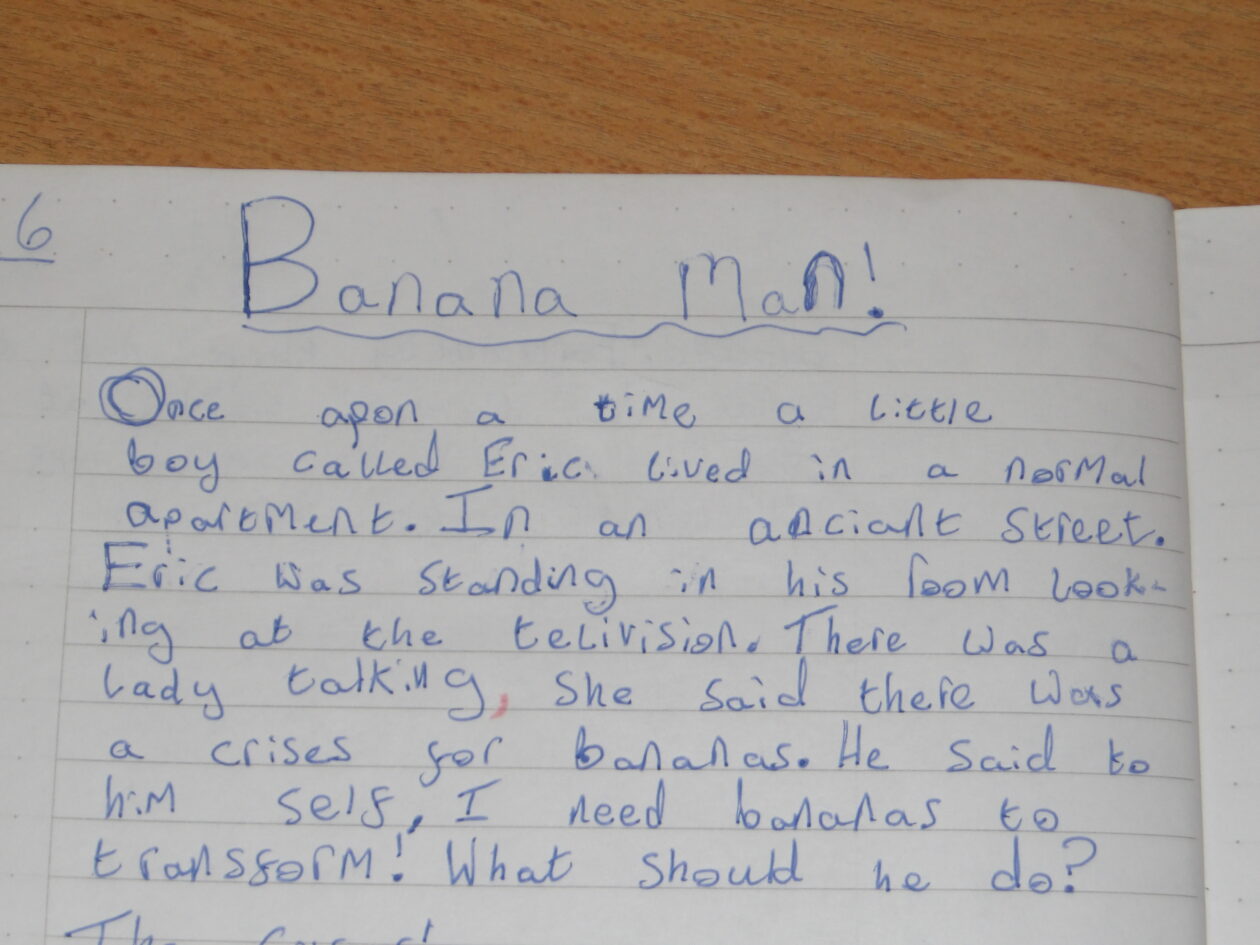 6
Banana Man!
Once apon a time a little
boy called Eric lived in a normal
apartment. In an anciant street.
Eric was standing in his room look-
ing at the telivision. There was a
lady talking, she said there was
a crises for bananas. He said to
him self, I need bananas to
transform! What should he do?